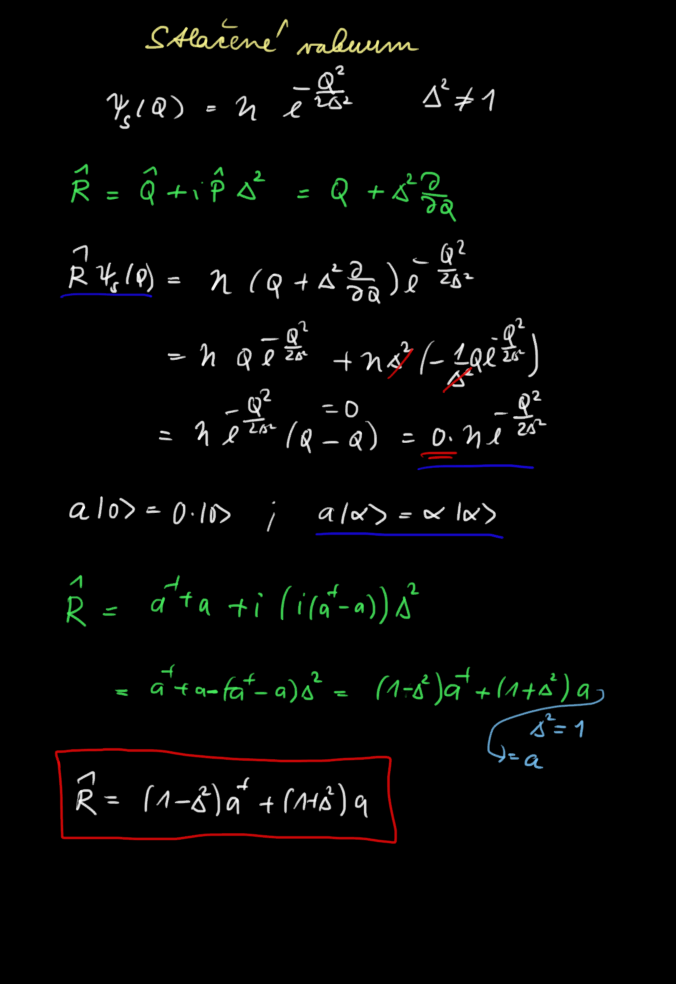 Stlačené vakuum
ψₛ(Q) = n e^{-Q²/2Δ²}   Δ² ≠ 1
R̂ = Q̂ + i P̂ Δ² = Q + Δ² ∂/∂Q
R̂ ψₛ(Q) = n (Q + Δ² ∂/∂Q) e^{-Q²/2Δ²}
= n Q e^{-Q²/2Δ²} + n Δ² (- 1/Δ² Q e^{-Q²/2Δ²})
= n e^{-Q²/2Δ²} (Q - Q) = 0 · n e^{-Q²/2Δ²}
= 0
a|0> = 0·|0> ; a|α> = α |α>
R̂ = a† + a + i (i(a† - a)) Δ²
= a† + a - (a† - a) Δ² = (1-Δ²) a† + (1+Δ²) a
Δ² = 1
= a
R̂ = (1-Δ²) a† + (1+Δ²) a